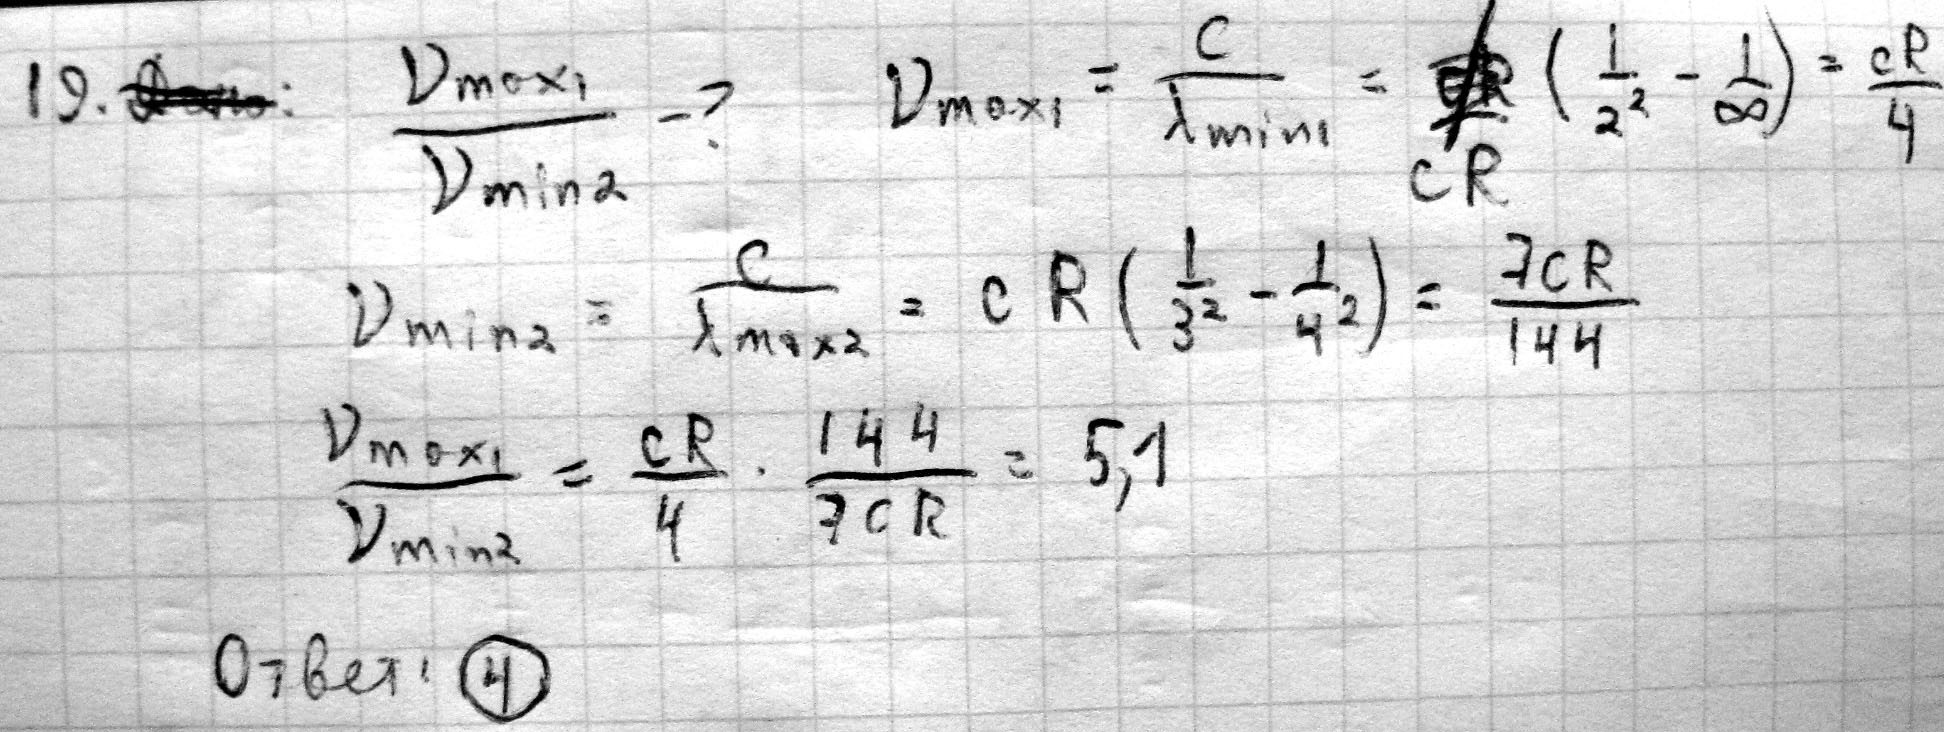 19. : νmax1/νmin2 - ? νmax1 = c/λmin1 = cR (1/2² - 1/∞) = cR/4
νmin2 = c/λmax2 = cR (1/3² - 1/4²) = 7cR/144
νmax1/νmin2 = cR/4 · 144/7cR = 5,1
Ответ: 4